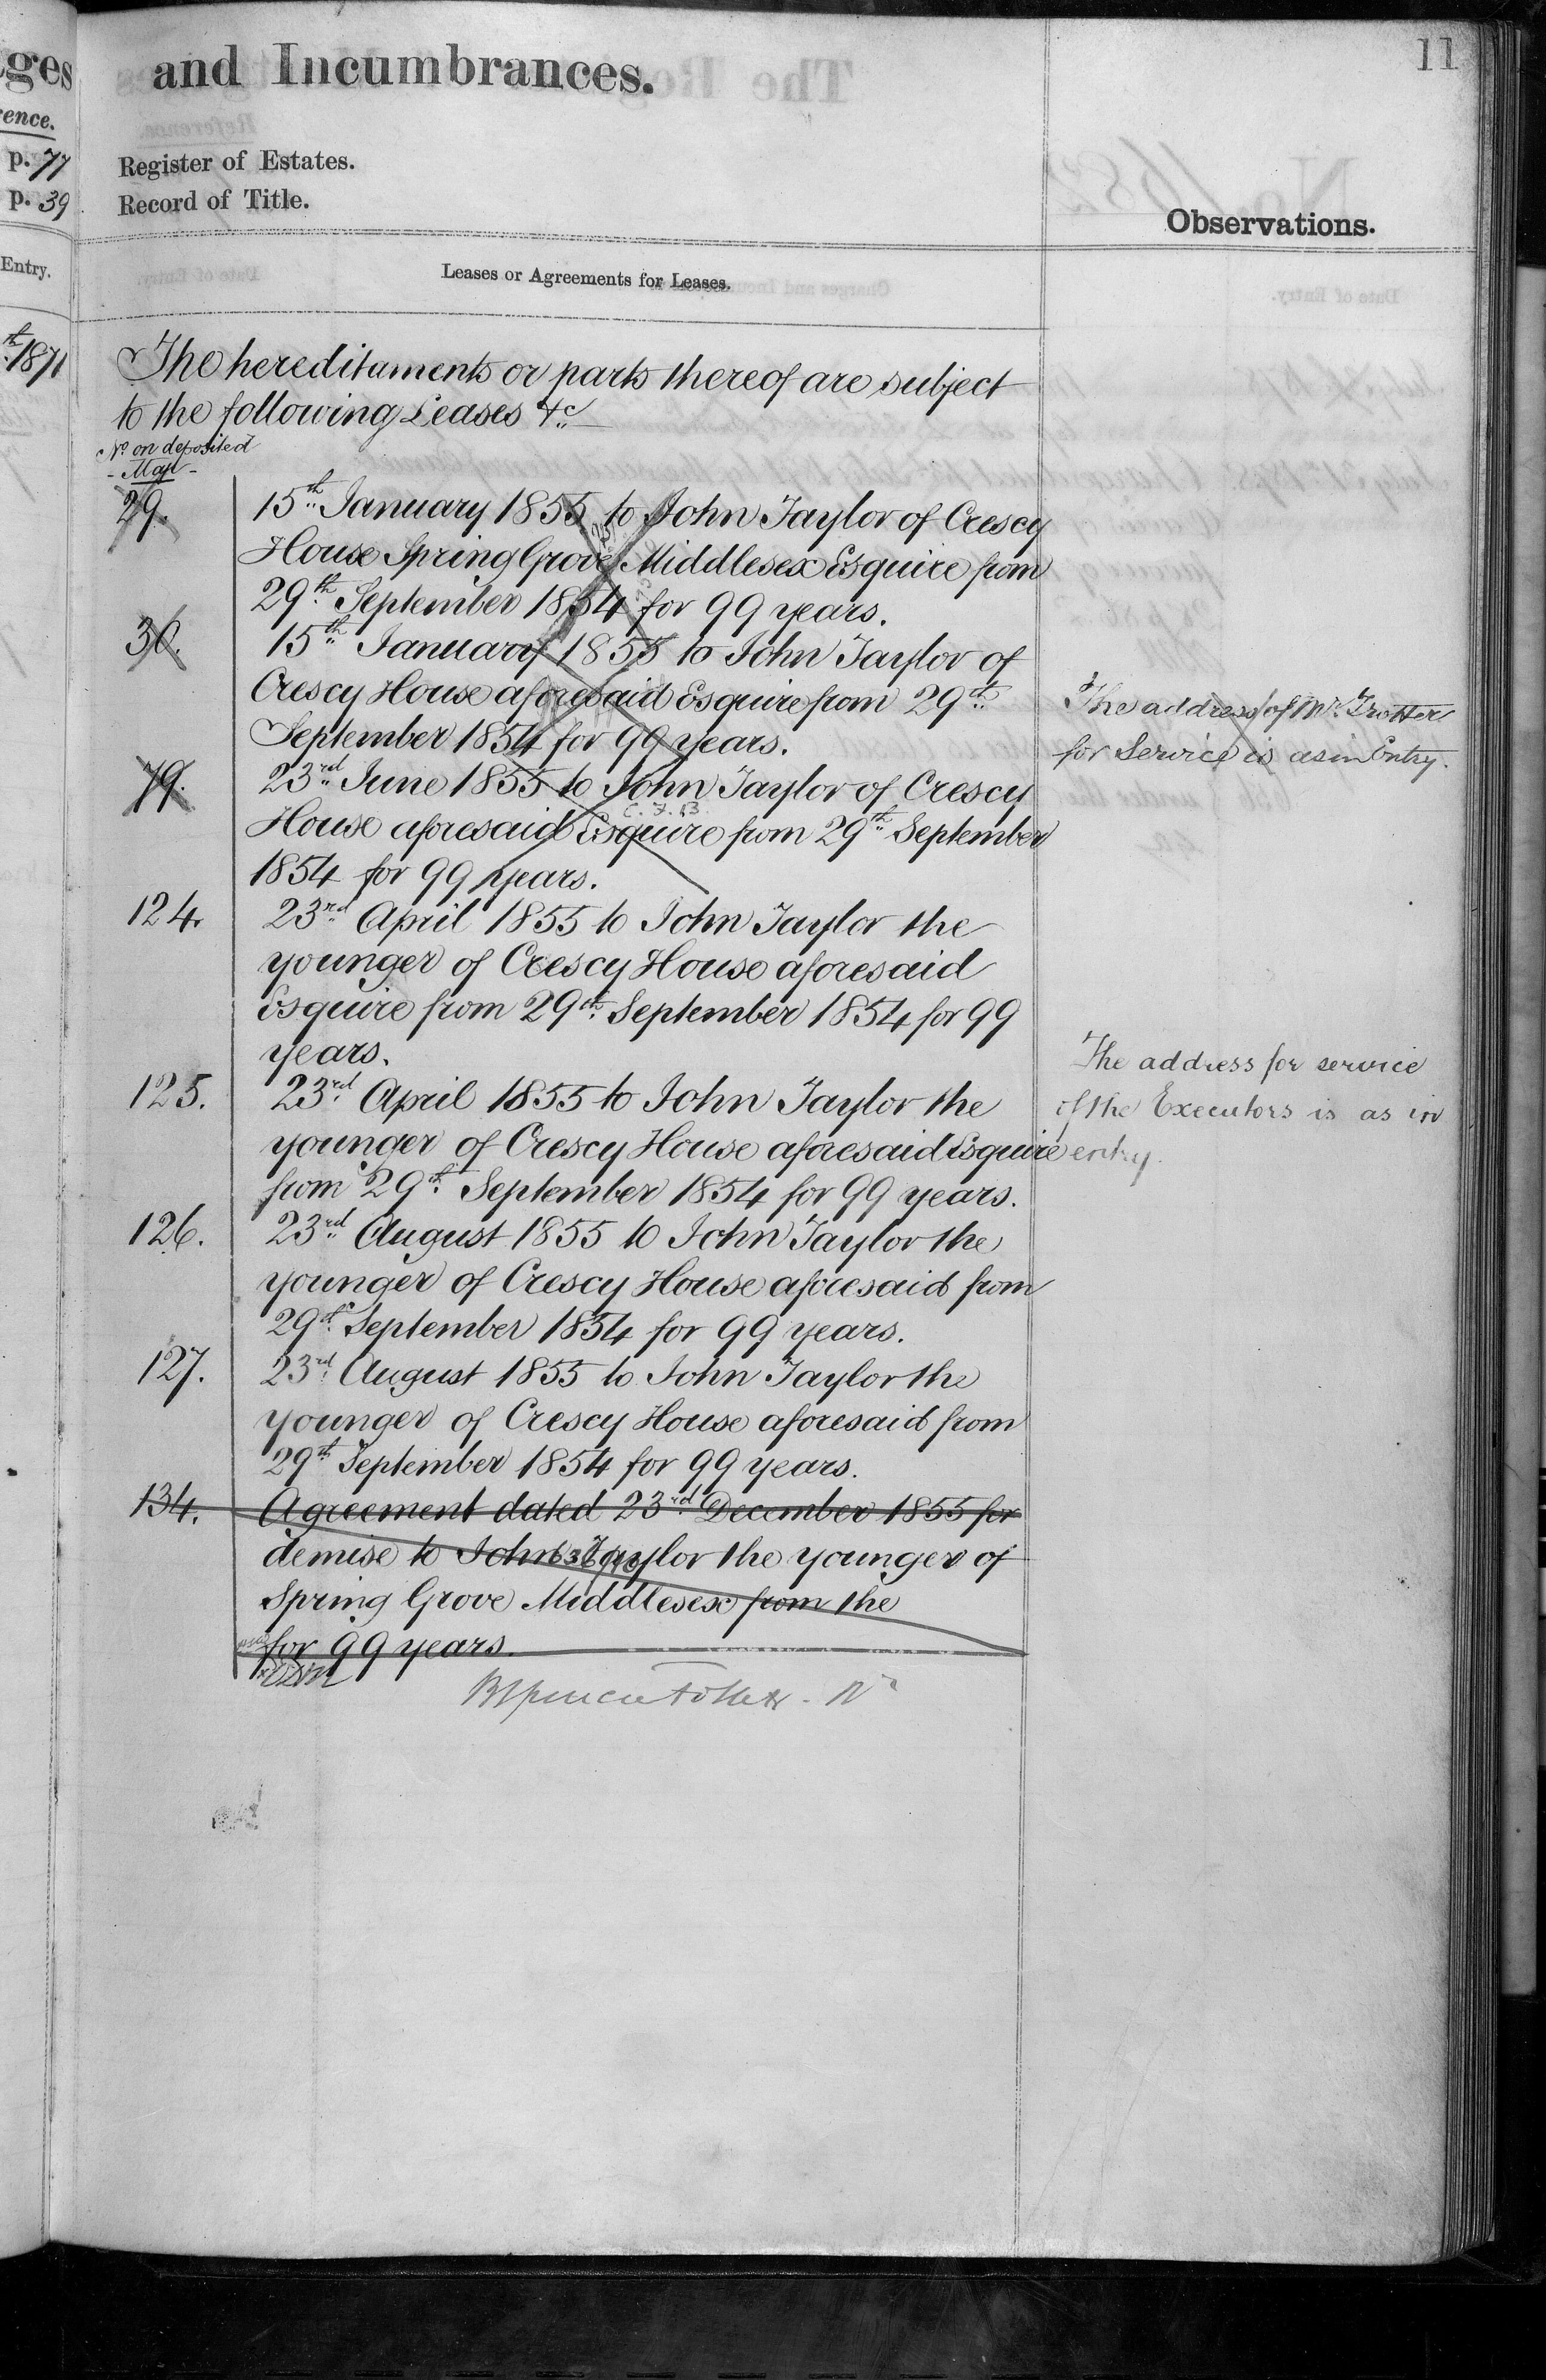 ges
and Incumbrances.
11
ence.
p. 77
Register of Estates.
p. 39
Record of Title.
Observations.
Entry.
Leases or Agreements for Leases.
th 1871
The hereditaments or parts thereof are subject
to the following Leases &c
No on deposited
- Map -
29. 15th January 1855 to John Taylor of Crescy
House Spring Grove Middlesex Esquire from
29th September 1854 for 99 years.
30. 15th January 1855 to John Taylor of
Crescy House aforesaid Esquire from 29th
September 1854 for 99 years.
The address of Mr. Trotter
for Service is as in Entry.
79. 23rd June 1855 to John Taylor of Crescy
House aforesaid Esquire from 29th September
1854 for 99 years.
124. 23rd April 1855 to John Taylor the
younger of Crescy House aforesaid
Esquire from 29th September 1854 for 99
years.
The address for service
of the Executors is as in
entry.
125. 23rd April 1855 to John Taylor the
younger of Crescy House aforesaid Esquire
from 29th September 1854 for 99 years.
126. 23rd August 1855 to John Taylor the
younger of Crescy House aforesaid from
29th September 1854 for 99 years.
127. 23rd August 1855 to John Taylor the
younger of Crescy House aforesaid from
29th September 1854 for 99 years.
134. Agreement dated 23rd December 1855 for
demise to John Taylor the younger of
Spring Grove Middlesex from the
for 99 years.